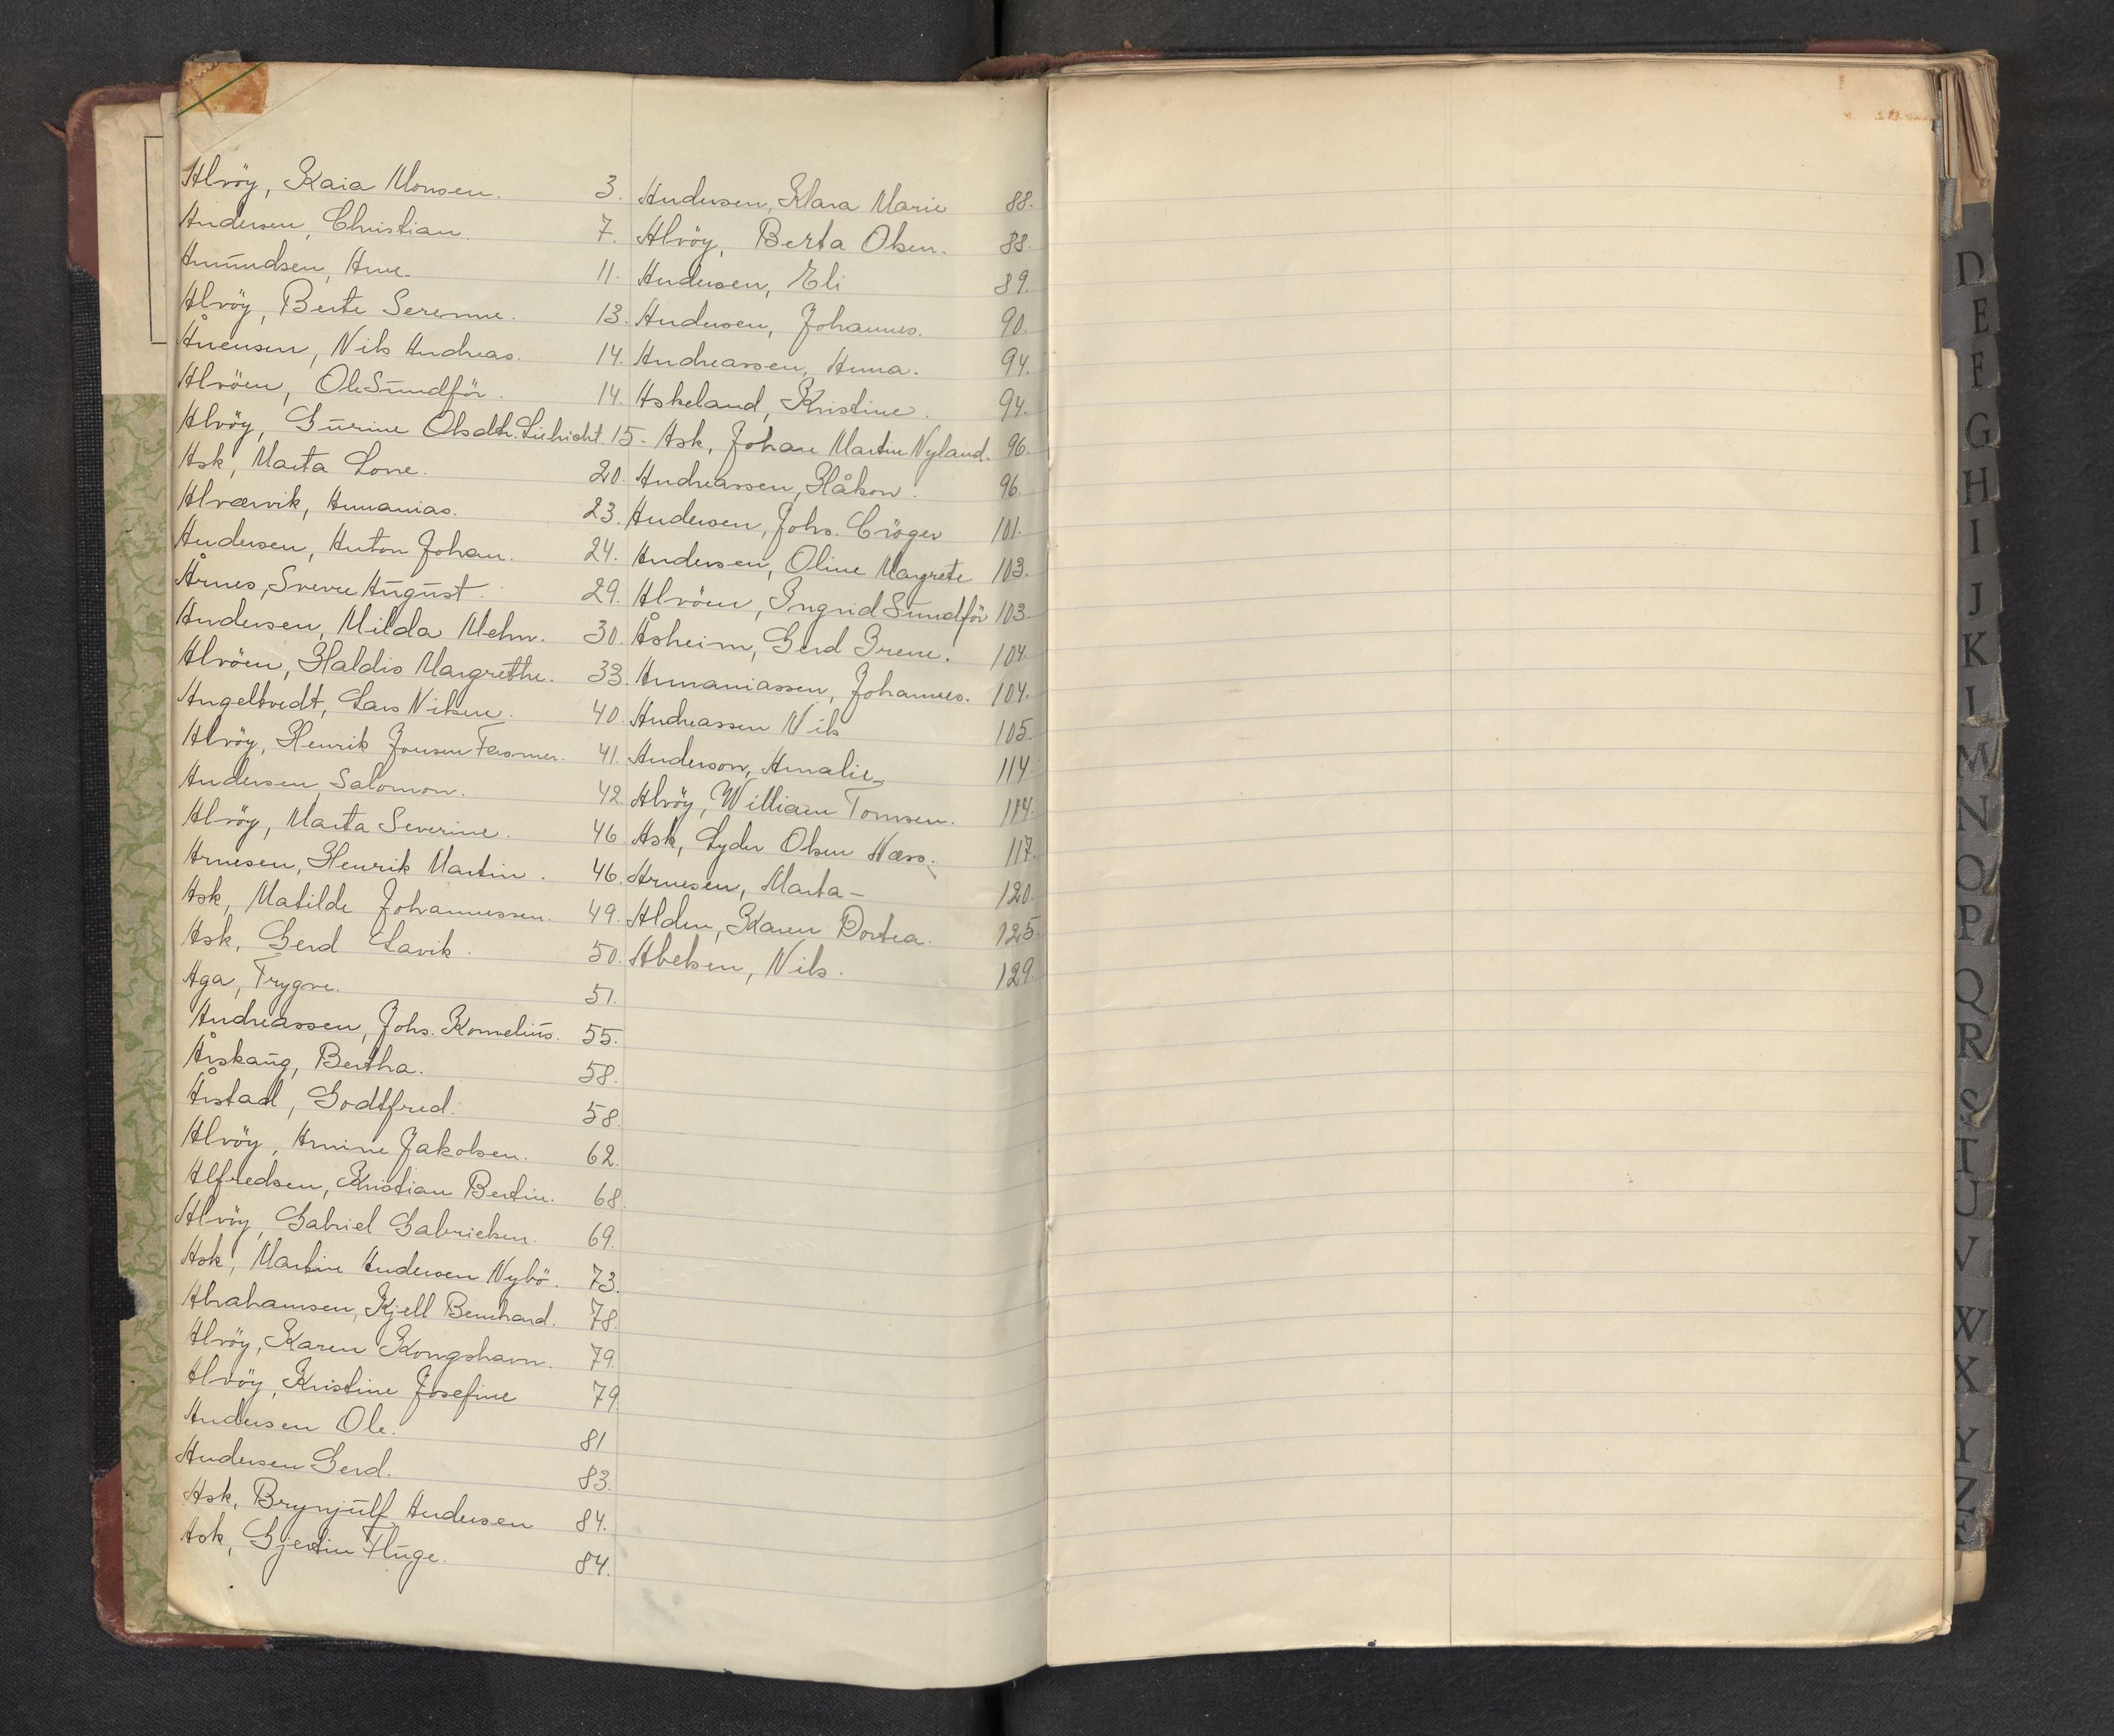 Alvöy, Kaia Monsen. 3.
Andersen, Christian. 7.
Amundsen, Arne. 11.
Alvöy, Berte Serenne. 13.
Arnevsen, Nils Andreas. 14.
Alvöen, Ole Sundför. 14.
Alvöy, Gurine Olsdtr. 15.
Ask, Marta Lone. 20.
Alværvik, Annanias. 23.
Andersen, Anton Johan. 24.
Årnes, Sverre August. 29.
Andersen, Milda Mehn. 30.
Alvöen, Haldis Margrethe. 33.
Angeltvedt, Lars Nilsen. 40.
Alvöy, Henrik Jonsen Fasmer. 41.
Andersen, Salomon. 42.
Alvöy, Marta Severine. 46.
Arnesen, Henrik Martin. 46.
Ask, Matilde Johannessen. 49.
Ask, Gerd Lavik. 50.
Aga, Trygve. 51.
Andreassen, Johs. Kornelius. 55.
Årskaug, Bertha. 58.
Årstad, Godtfred. 58.
Alvöy, Amine Jakobsen. 62.
Alfredsen, Kristian Bertin. 68.
Alvöy, Gabriel Gabrielsen. 69.
Ask, Martin Andersen Nybö. 73.
Abrahamsen, Kjell Bernhard. 78.
Alvöy, Karen Kongshavn. 79.
Alvöy, Kristine Josefine 79.
Andersen Ole. 81
Andersen Gerd. 83.
Ask, Brynjulf Andersen 84.
Ask, Gjertin Fluge. 84.
Andersen, Klara Marie 88.
Alvöy, Berta Olsen. 88.
Andersen, Eli 89.
Andersen, Johannes. 90.
Andreassen, Anna. 94.
Askeland, Kristine. 94.
Ask, Johan Martin Nyland. 96.
Andreassen, Håkon. 96.
Andersen, Johs. Cröger 101.
Andersen, Oline Margrete 103.
Alvöen, Ingrid Sundför 103.
Åsheim, Gerd Irene. 104.
Annaniassen, Johannes. 104.
Andreassen Nils 105.
Anderson, Amalie 114.
Alvöy, William Tomsen. 114.
Ask, Lyder Olsen Næss. 117.
Arnesen, Marta - 120.
Alden, Karen Dortea. 125.
Abelsen, Nils. 129.
D
E
F
G
H
I
J
K
L
M
N
O
P
Q
R
S
T
U
V
W
X
Y
Z